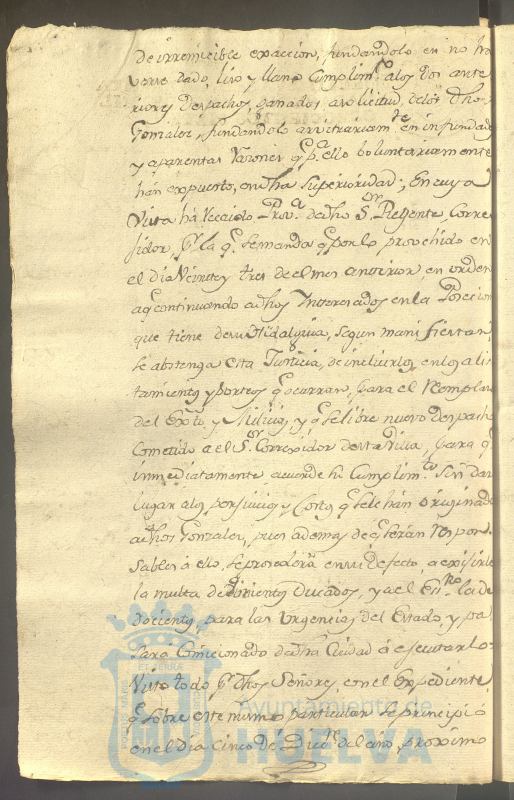 de irremicible exaccion, fundandolo en no ha
verse dado, liso y llano Cumplim.to alos dos ante
riores Despachos, ganados a solicitud delos dhos
Gonzalez, fundandolo arvitrariam.te en infundad
y aparentes Razones q.e p.a ello boluntariamente
han expuesto, en dha Superioridad; En cuya
Vista ha Recaido Prov.a de dho S.or Regente, Corre
sidor, p.r la q.e se manda q.e por lo provehido en
el dia Veinte y tres de el mes anterior, en orden
a q.e continuando a dhos Interesados en la Posecion
que tiene de su Hidalguia, segun manifiestan,
se abstenga esta Justicia, de incluirlos en los alis
tamientos y sorteos q.e ocurran, para el Remplazo
del Ex.to y Milicias, y q.e se libre nuevo Despacho
Cometido a el S.or Corregidor de esta Villa, para q.e
inmediatamente acuerde su Cumplim.to Sin dar
lugar a los perjuicios y Costas q.e se le han originado
a dhos Gonzalez, pues ademas de q.e seran Respon
sables a ello, se procedera en su defecto, a exijirle
la multa de quinientos Ducados, y a el Es.no la de
docientos, para las Urgencias del Estado, y pa
sara Comicionado de dha Ciudad a ejecutarlo:
Visto todo p.r dhos Señores, con el Expediente
q.e sobre este mismo particular se principió
en el dia cinco de Dic.re del año proximo
PORTUS MARIS
ET TERRÆ
Ayuntamiento de
HUELVA